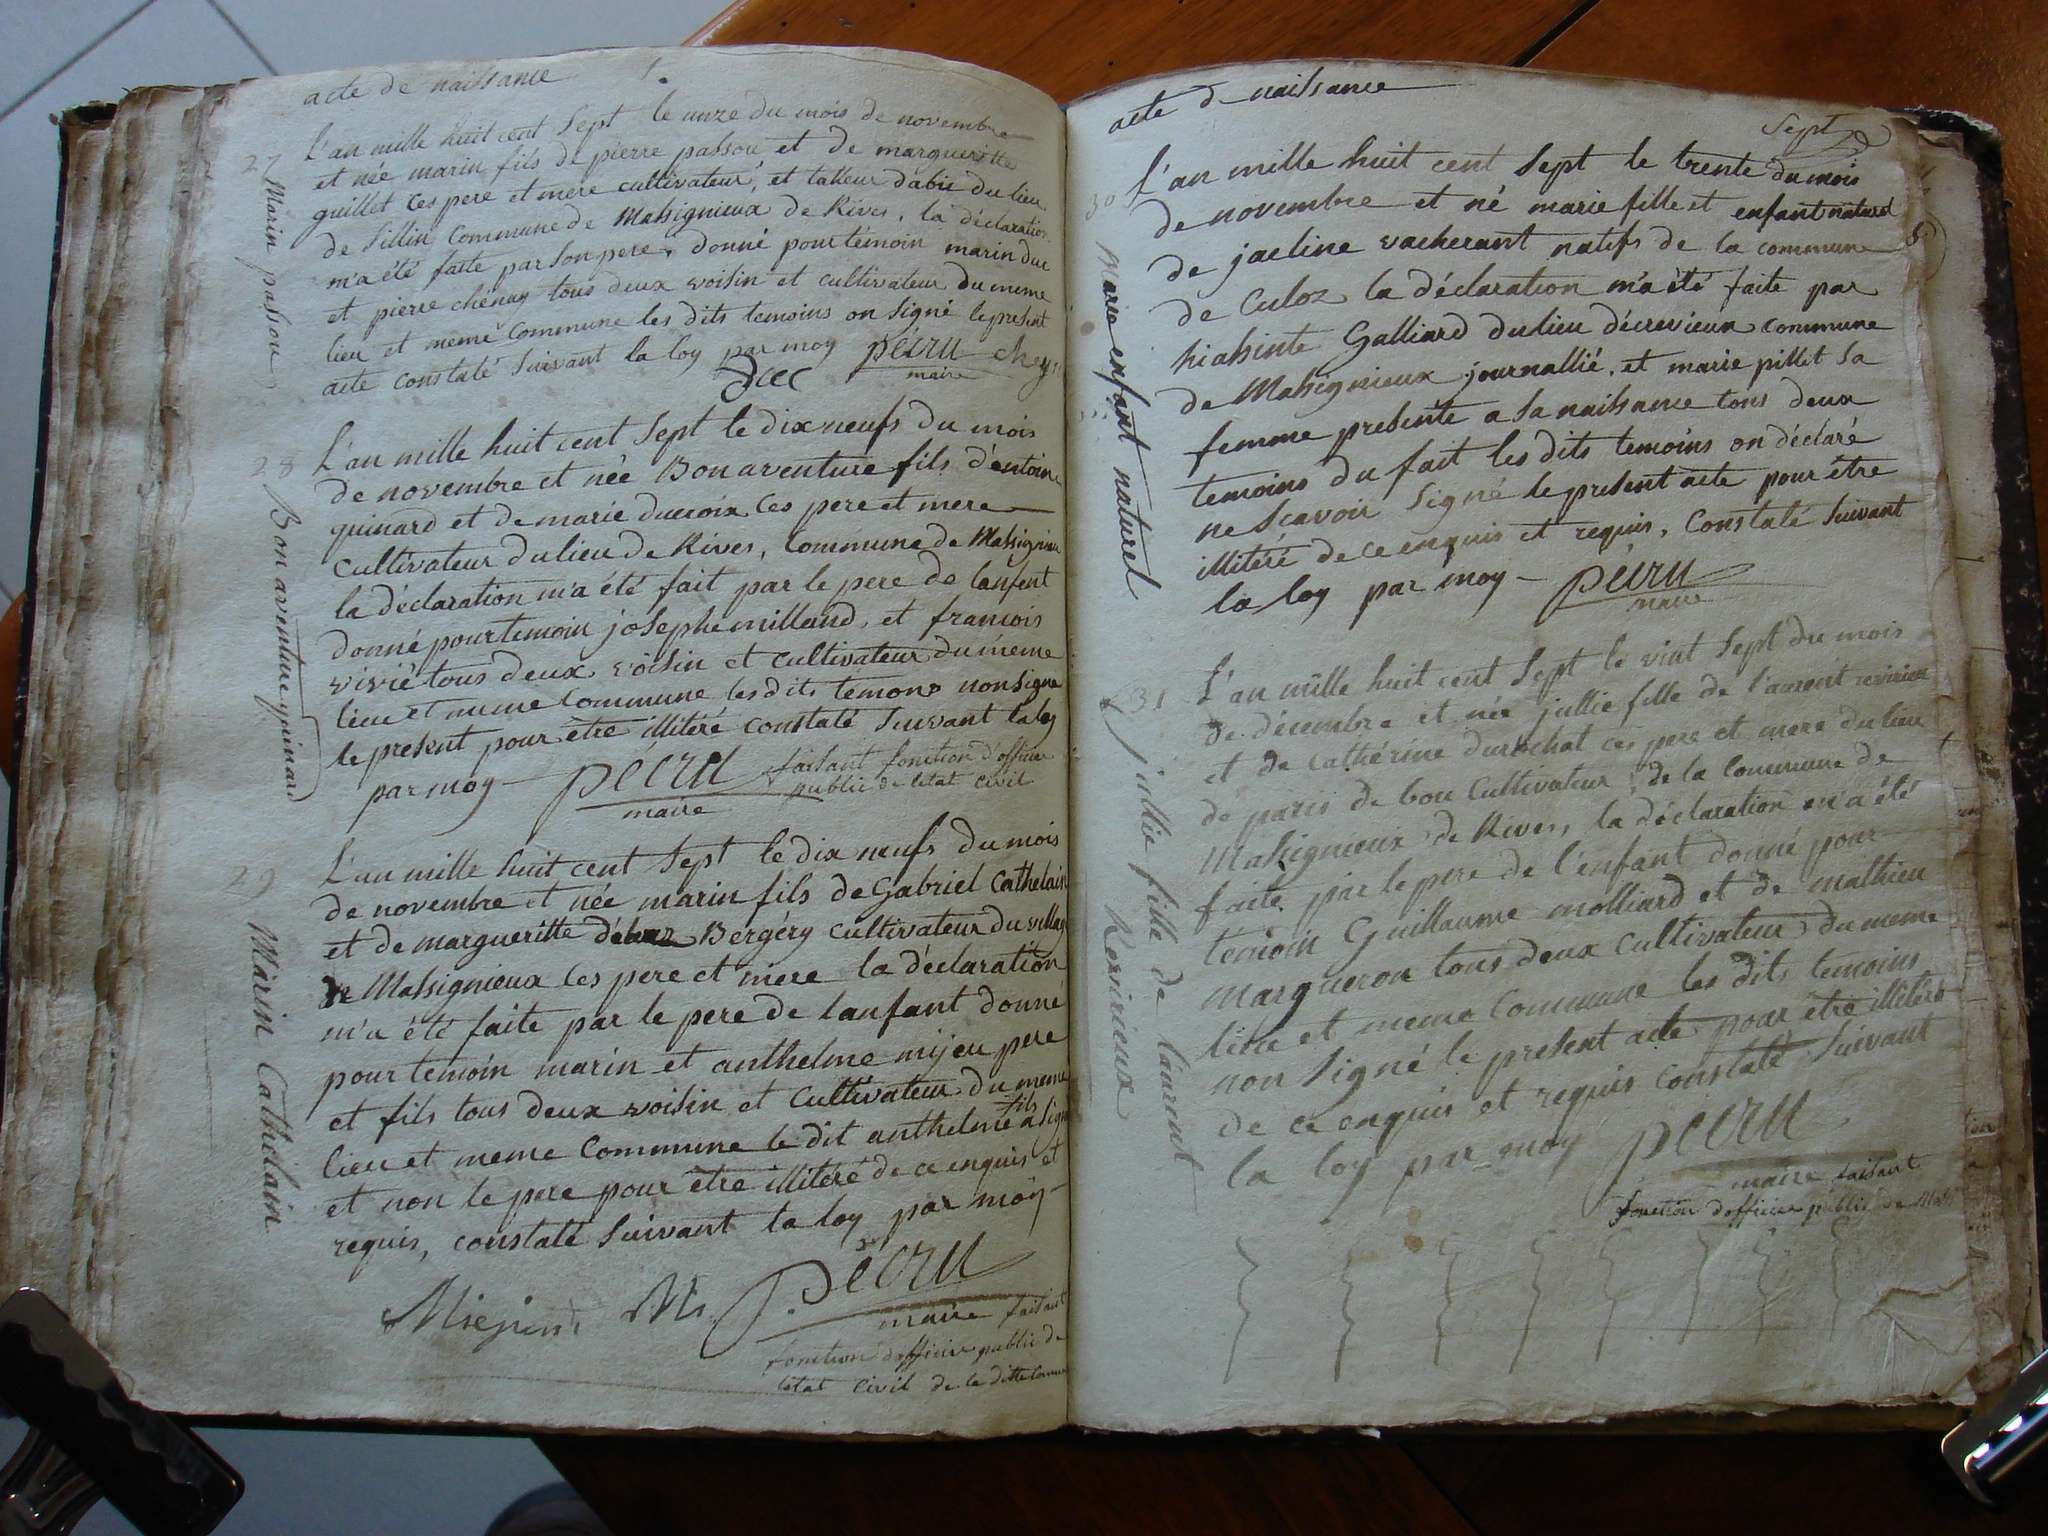 acte de naissance
27
Marin passou
L'an mille huit cent Sept le unze du mois de novembre
et née marin fils de pierre passou et de margueritte
guillet ces pere et mere cultivateur, et talleur dabie du lieu
de Sillin Commune de Massignieux de Rives, la déclaration
m'a été faite par son pere, donné pour témoin marin duc
et pierre chénay tous deux voisin et cultivateur du meme
lieu et meme Commune les dits temoins on Signé le present
acte constaté Suivant la loy par moy pécru
maire
28
Bonaventure guinard
L'an mille huit cent Sept le dix neufs du mois
de novembre et née Bonaventure fils d'entoine
guinard et de marie ducroix Ces pere et mere
Cultivateur du lieu de Rives, Commune de Massignieu
la déclaration m'a été fait par le pere de lanfent
donné pour temoin josephe milland, et francois
vivié tous deux voisin et cultivateur du meme
lieu et meme Commune les dits temons non Signe
le present pour etre illitéré constaté Suivant la loy
par moy pécru faisant fonction d'officier
maire public de létat civil
29
Marin Cathelain
L'an mille huit cent Sept le dix neufs du mois
de novembre et née marin fils de Gabriel Cathelain
et de margueritte Bergéry cultivateur du village
de Massignieux Ces pere et mere la déclaration
m'a été faite par le pere de lanfant donné
pour temoin marin et anthelme mijeu pere
et fils tous deux voisin et Cultivateur du meme
lieu et meme Commune le dit anthelme fils a Signe
et non le pere pour etre illitéré de ce enquis et
requis, constaté Suivant la loy par moy
pécru
maire faisant
fonction d'officier public de
létat civil de la ditte Commune
acte de naissance
Sept
30
Marie enfant naturel
L'an mille huit cent Sept le trente du mois
de novembre et né marie fille et enfant naturel
de jacline vacherant natifs de la commune
de Culoz la déclaration m'a été faite par
hiasinte Galliard du lieu décrevieux commune
de Massignieux journallié, et marie pillet Sa
femme presente a Sa naissance tous deux
temoins du fait les dits temoins on déclaré
ne Scavoir Signé le present acte pour étre
illitéré de ce enquis et requis, Constaté Suivant
la loy par moy pécru
maire
31
jullie fille de laurent Revirieux
L'an mille huit cent Sept le vint Sept du mois
de décembre et née jullie fille de laurent revirieu
et de Cathérine durochat ces pere et mere du lieu
de paris de bou Cultivateur, de la Commune de
Massignieux de Rives, la déclaration m'a été
faite par le pere de l'enfant donné pour
témoin Guillaume molliard et de mathieu
margueron tous deux Cultivateur du meme
lieu et meme Commune les dits temoins
non Signé le present acte pour étre illitéré
de ce enquis et requis constaté Suivant
la loy par moy pécru
maire faisant
fonction d'officier public de